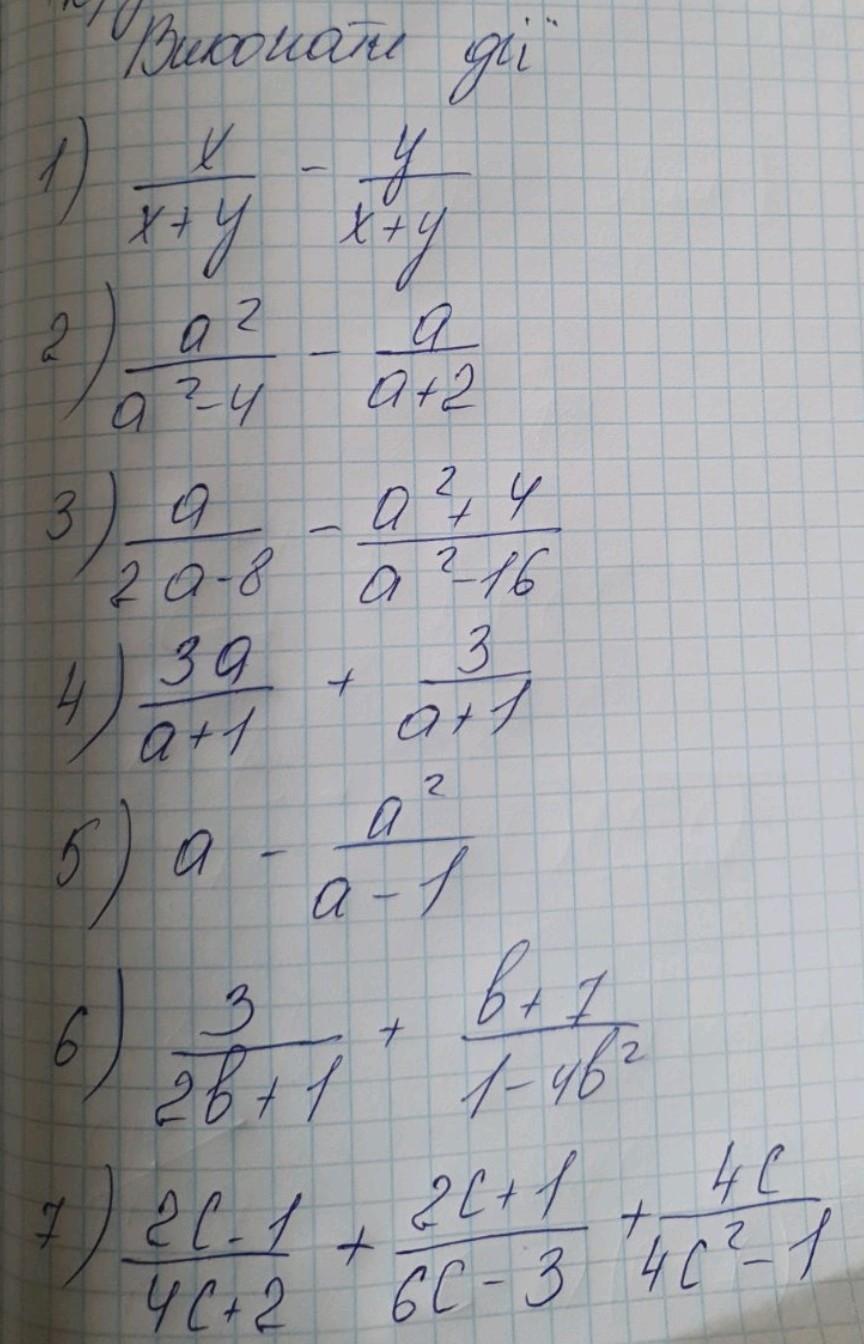 Виконати дії
1) x/(x+y) - y/(x+y)
2) a²/(a²-4) - a/(a+2)
3) a/(2a-8) - (a²+4)/(a²-16)
4) 3a/(a+1) + 3/(a+1)
5) a - a²/(a-1)
6) 3/(2b+1) + (b+7)/(1-4b²)
7) (2c-1)/(4c+2) + (2c+1)/(6c-3) + 4c/(4c²-1)